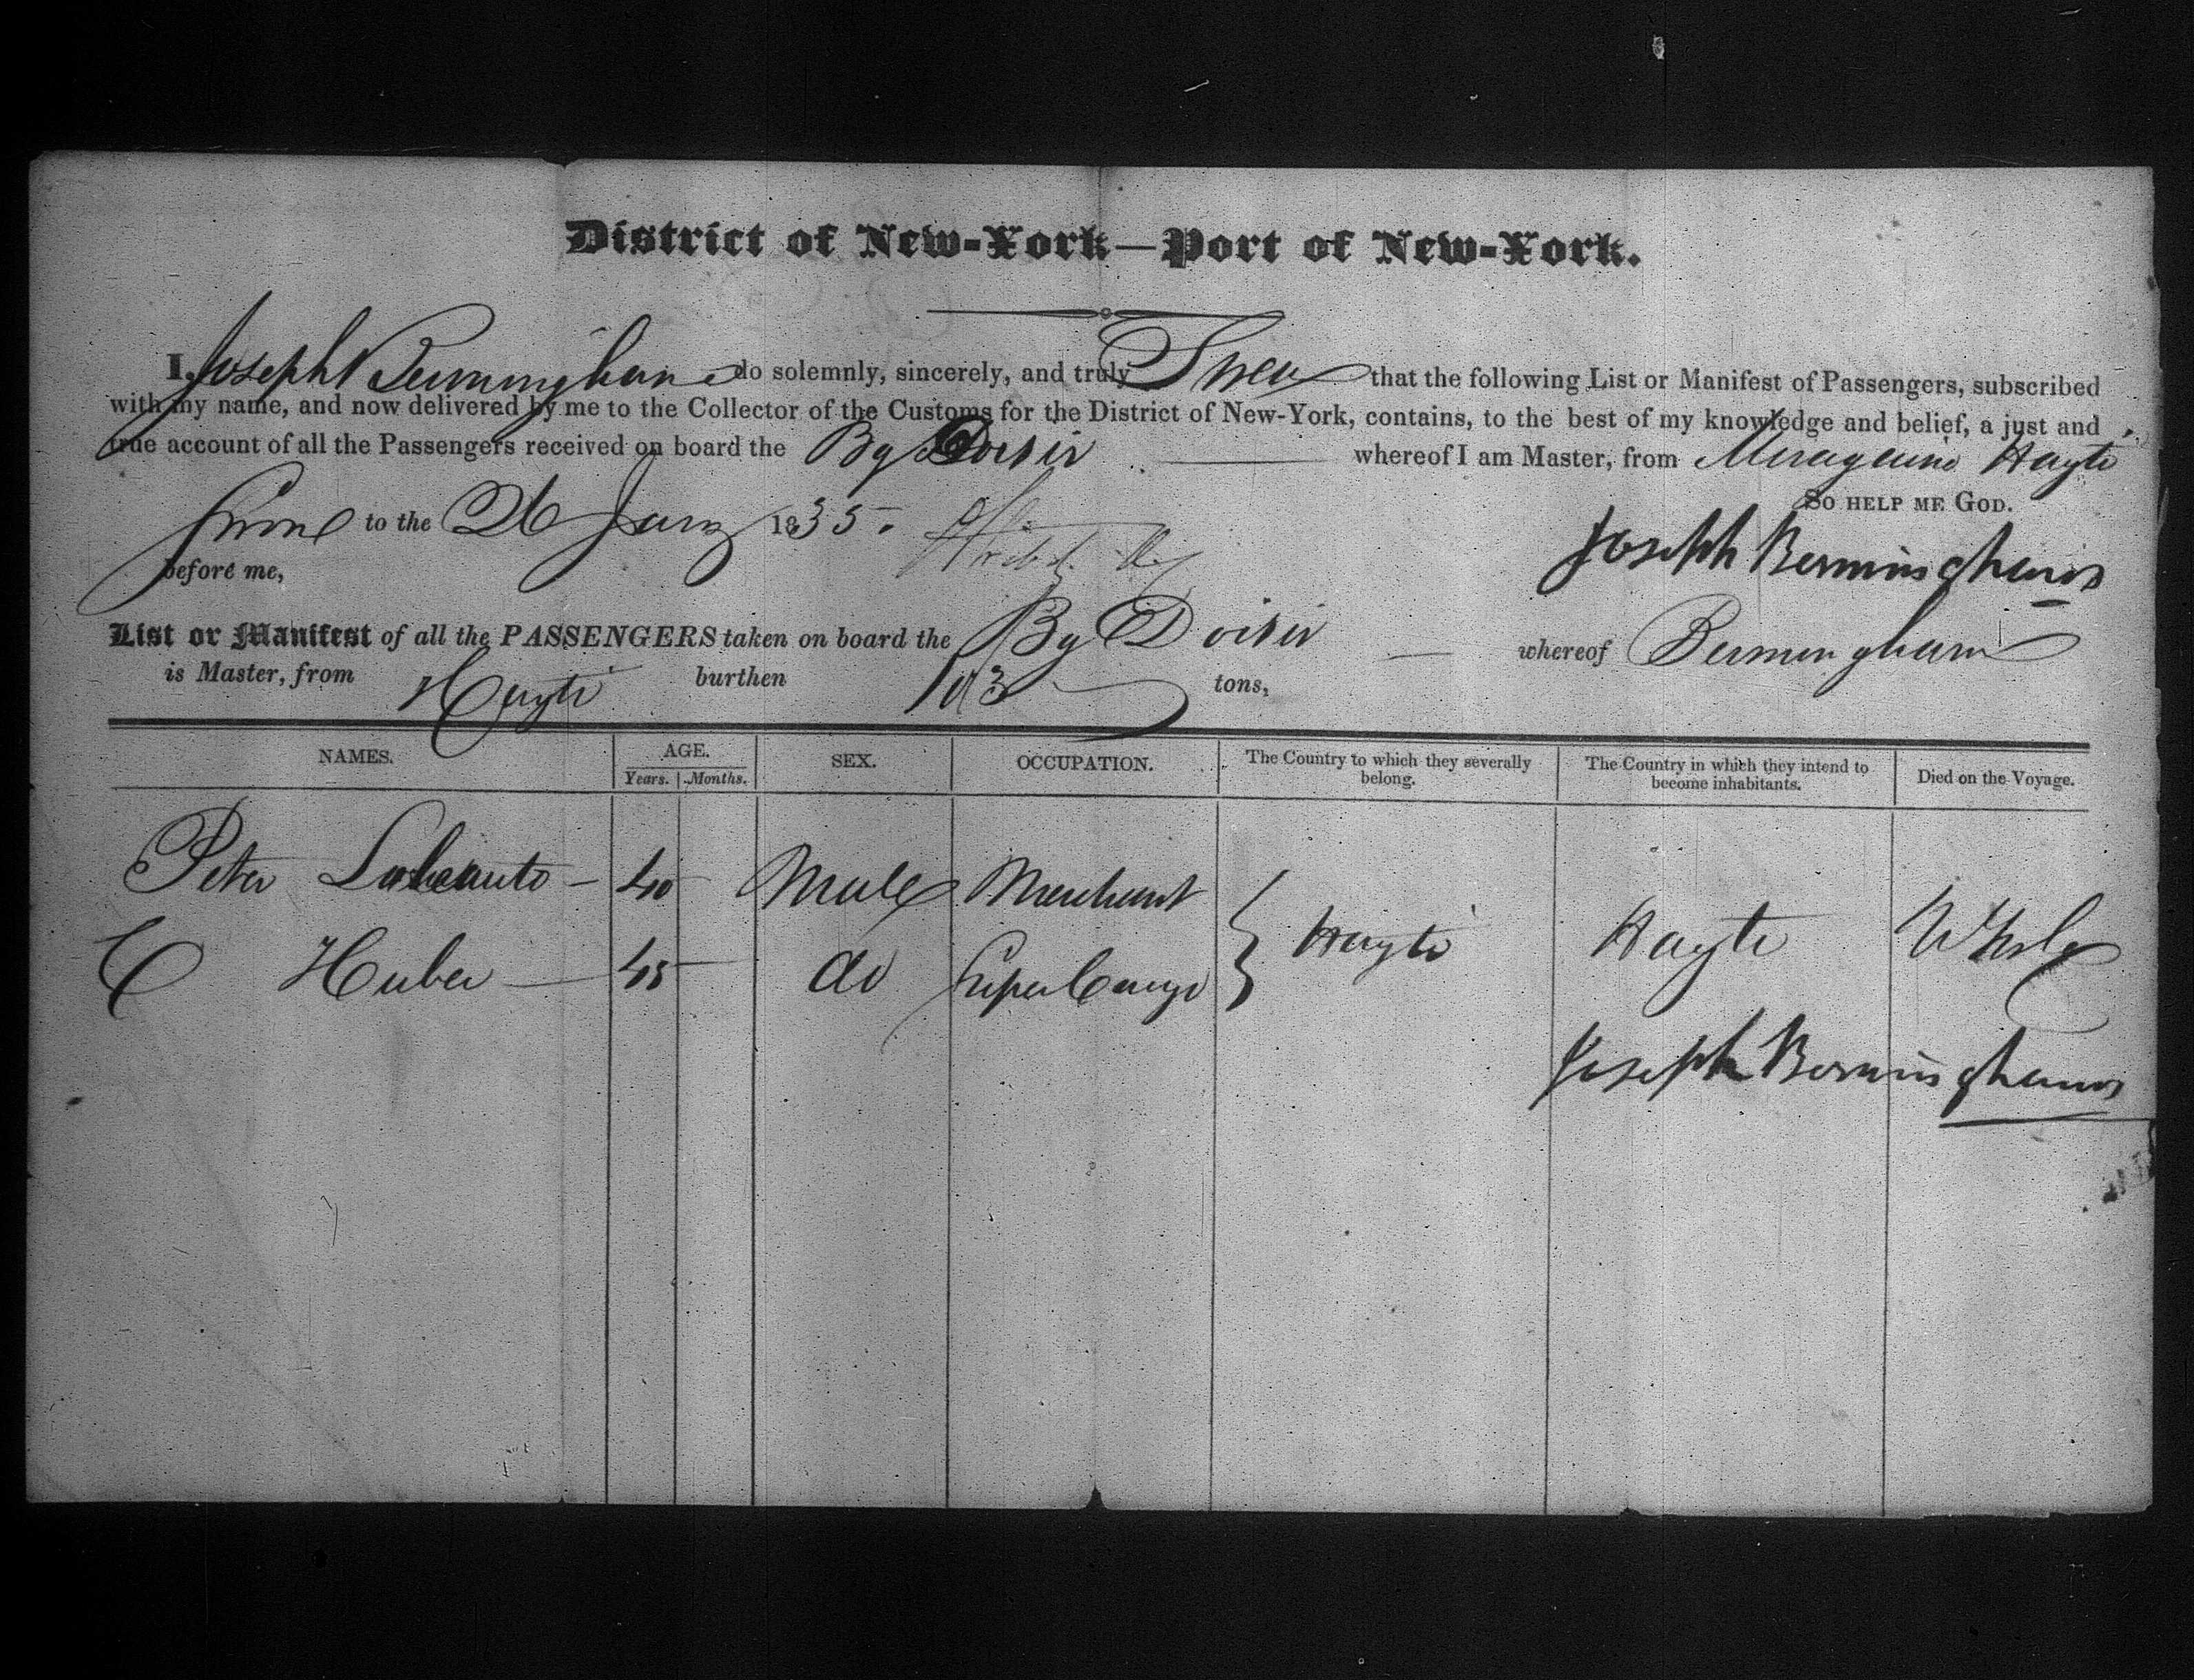 District of New-York—Port of New-York.
I, Joseph Bermingham do solemnly, sincerely, and truly Swear that the following List or Manifest of Passengers, subscribed
with my name, and now delivered by me to the Collector of the Customs for the District of New-York, contains, to the best of my knowledge and belief, a just and
true account of all the Passengers received on board the Bg whereof I am Master, from Hayti
So help me God.
Sworn to the 26 Jany 1835.
Joseph Bermingham
before me,
List or Manifest of all the PASSENGERS taken on board the Bg whereof Bermingham
is Master, from Hayti burthen 103 tons,
NAMES. AGE. SEX. OCCUPATION. The Country to which they severally belong. The Country in which they intend to become inhabitants. Died on the Voyage.
Years. Months.
Peter 40 Male Merchant
C Huber 45 do Super Cargo } Hayti Hayti
Joseph Bermingham